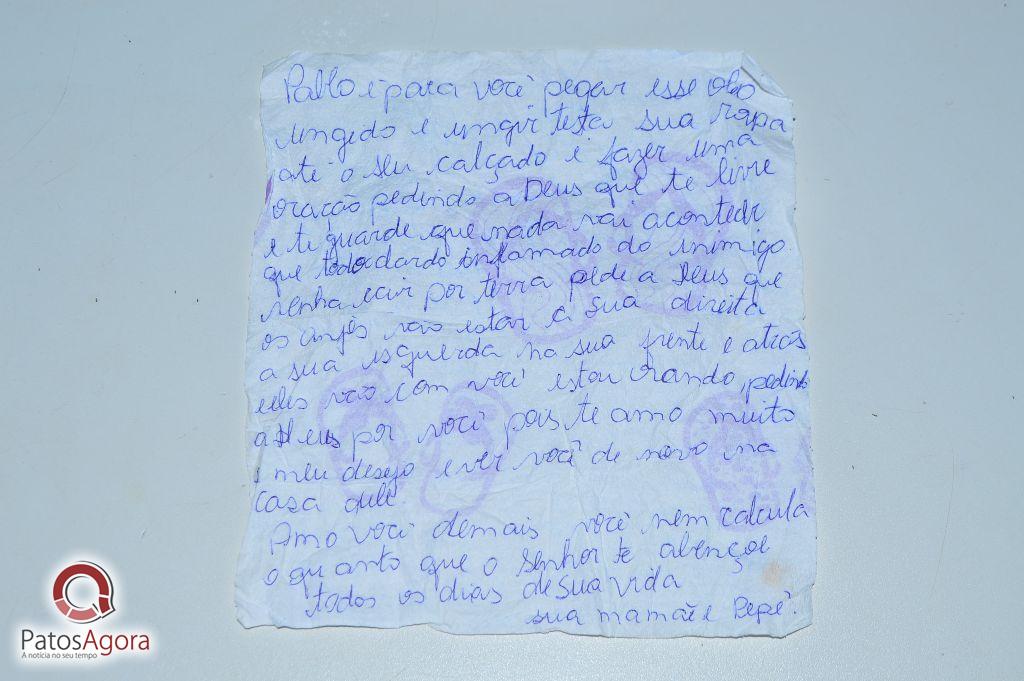 Pablo é para você pegar esse oleo
ungedo e ungir testa sua roupa
até o seu calçado e fazer uma
oração pedindo a Deus que te livre
e te guarde que nada vai acontecer
que todo dardo inflamado do inimigo
venha cair por terra pede a Deus que
os anjos vão estar a sua direita
a sua isquerda na sua frente e atrás
eles vão com você estou orando, pedindo
a Deus por você pois te amo muito
meu desejo e ver você de novo na
casa dele
Amo você demais você nem calcula
o quanto que o Senhor te abençoe
todos os dias de sua vida
sua mamãe e Pepê.
PatosAgora
A notícia no seu tempo